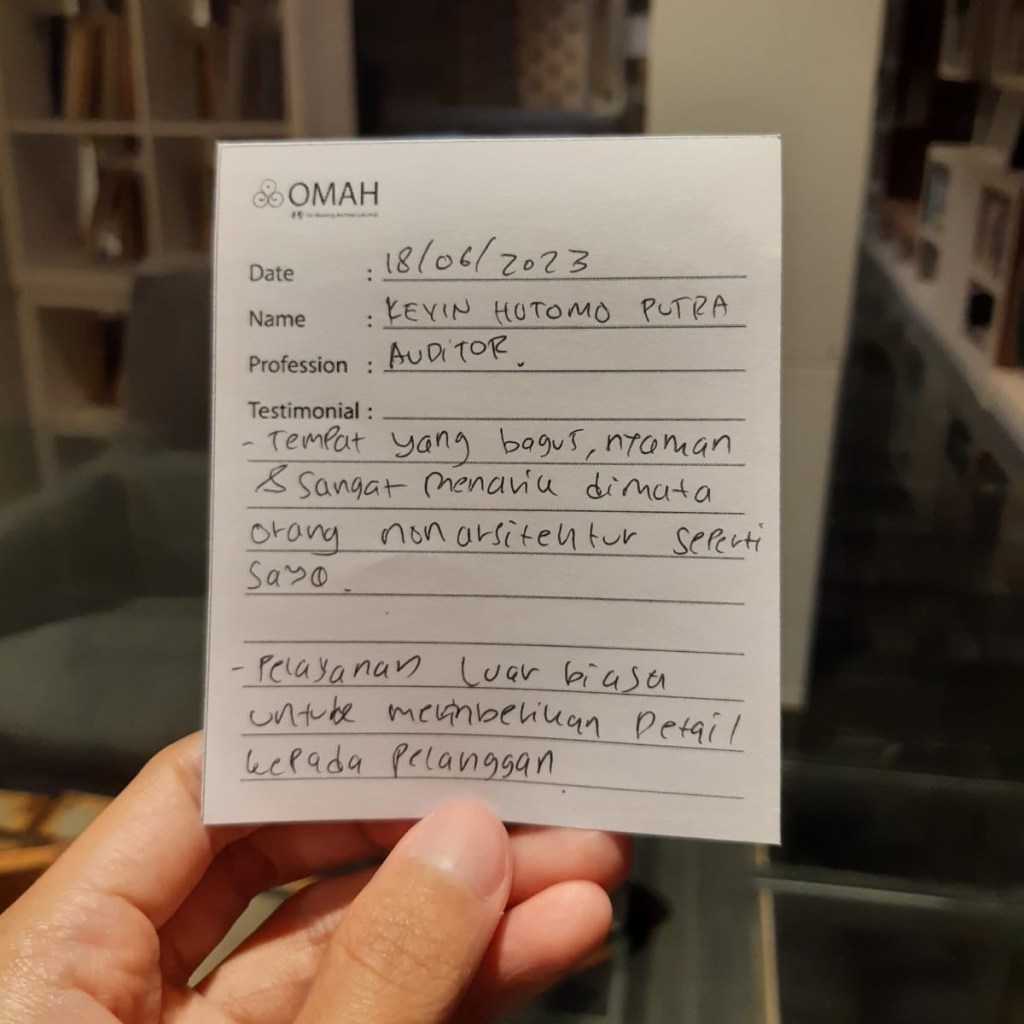 OMAH
Date : 18/06/2023
Name : KEVIN HUTOMO PUTRA
Profession : AUDITOR.
Testimonial :
- Tempat yang bagus, nyaman
& sangat menarik dimata
orang non arsitektur seperti
saya.
- Pelayanan luar biasa
untuk memberikan Detail
kepada pelanggan